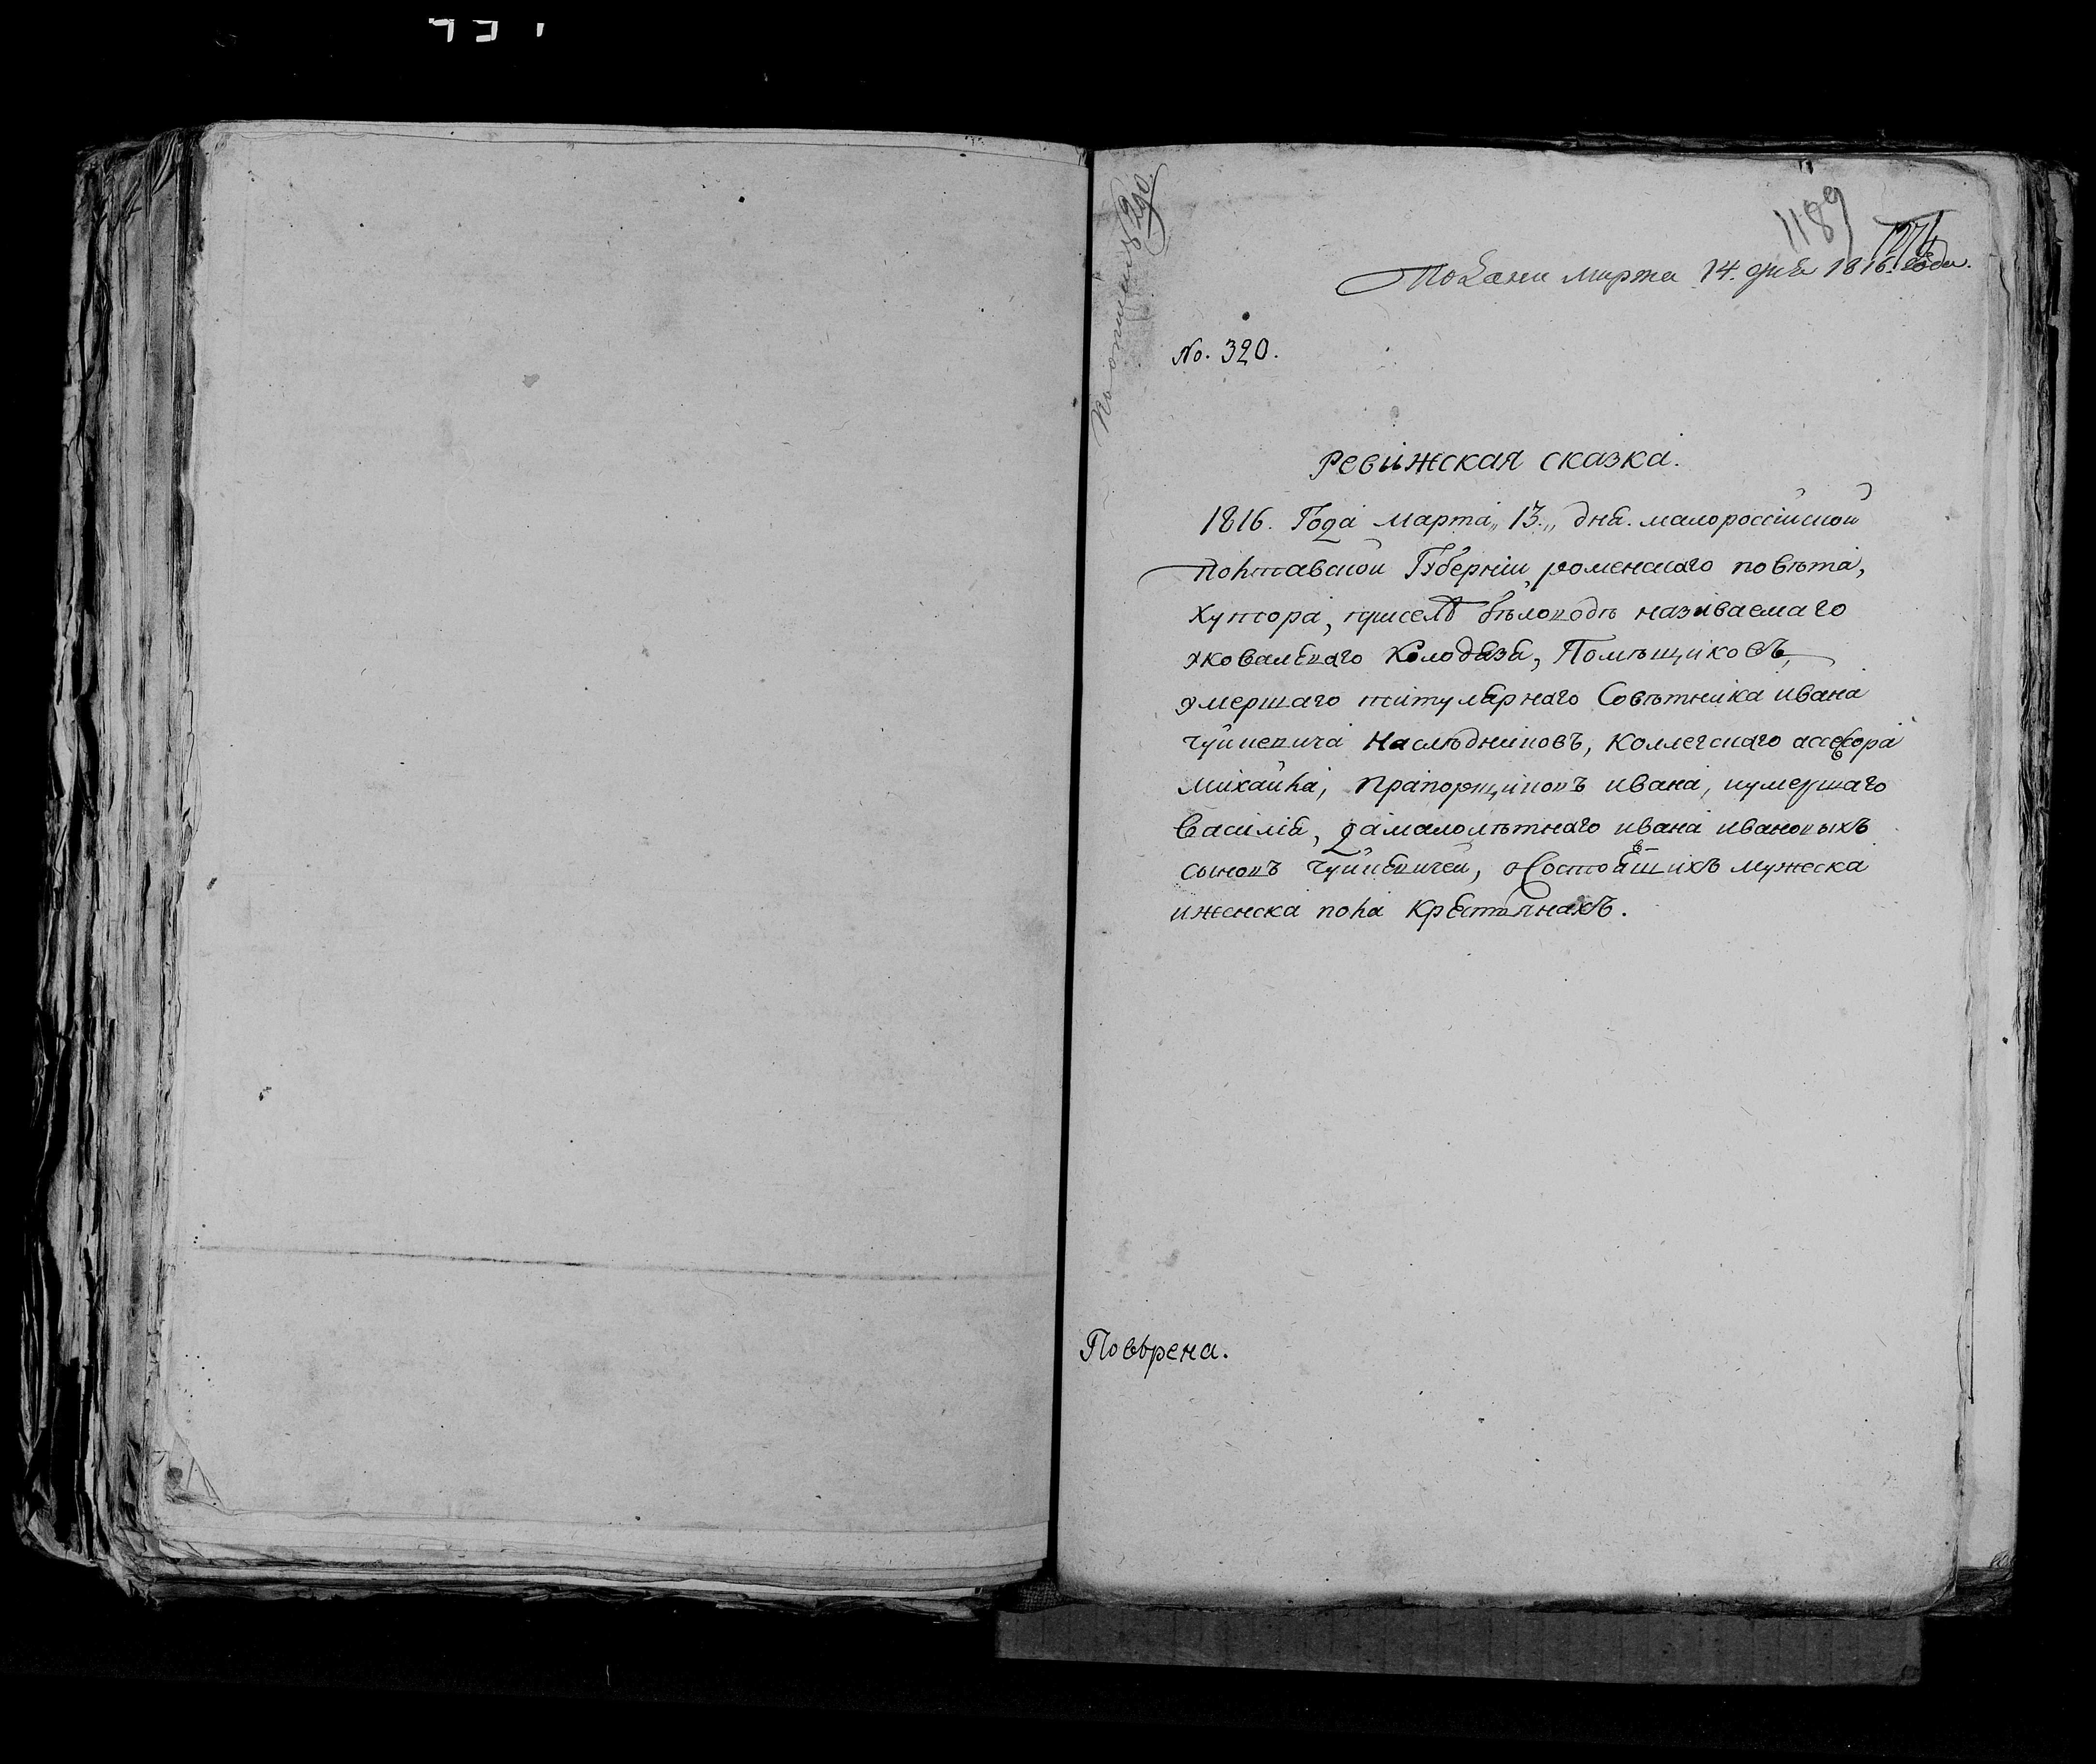 По описи № 290.
1189
Подана марта 14. дня 1816. года.
No. 320.
Ревижская сказка.
1816. Года марта „13.„ дня. малороссійской
полтавской Губерніи, роменского повѣта,
хутора, при селѣ бѣловодѣ називаемаго
яковалского Колодязя, Помѣщиковъ,
умершаго титулярнаго Совѣтника ивана
Чуйкевича Наслѣдниковъ, Коллегскаго ассесора
михайла, Прапорщиковъ ивана, иумершаго
василія, дамалолѣтнаго ивана ивановыхъ
сыновъ Чуйкевичей, оСостоявшихъ мужеска
иженска пола Крестянахъ.
Повѣрена.